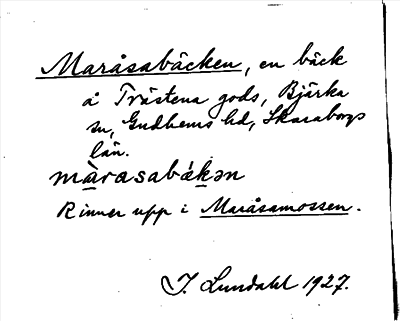 Maråsabäcken, en bäck
å Trästena gods, Bjärka
sn, Gudhems hd, Skaraborgs
län.
màrasabákən
Rinner upp i Maråsamossen.
I. Lundahl 1927.